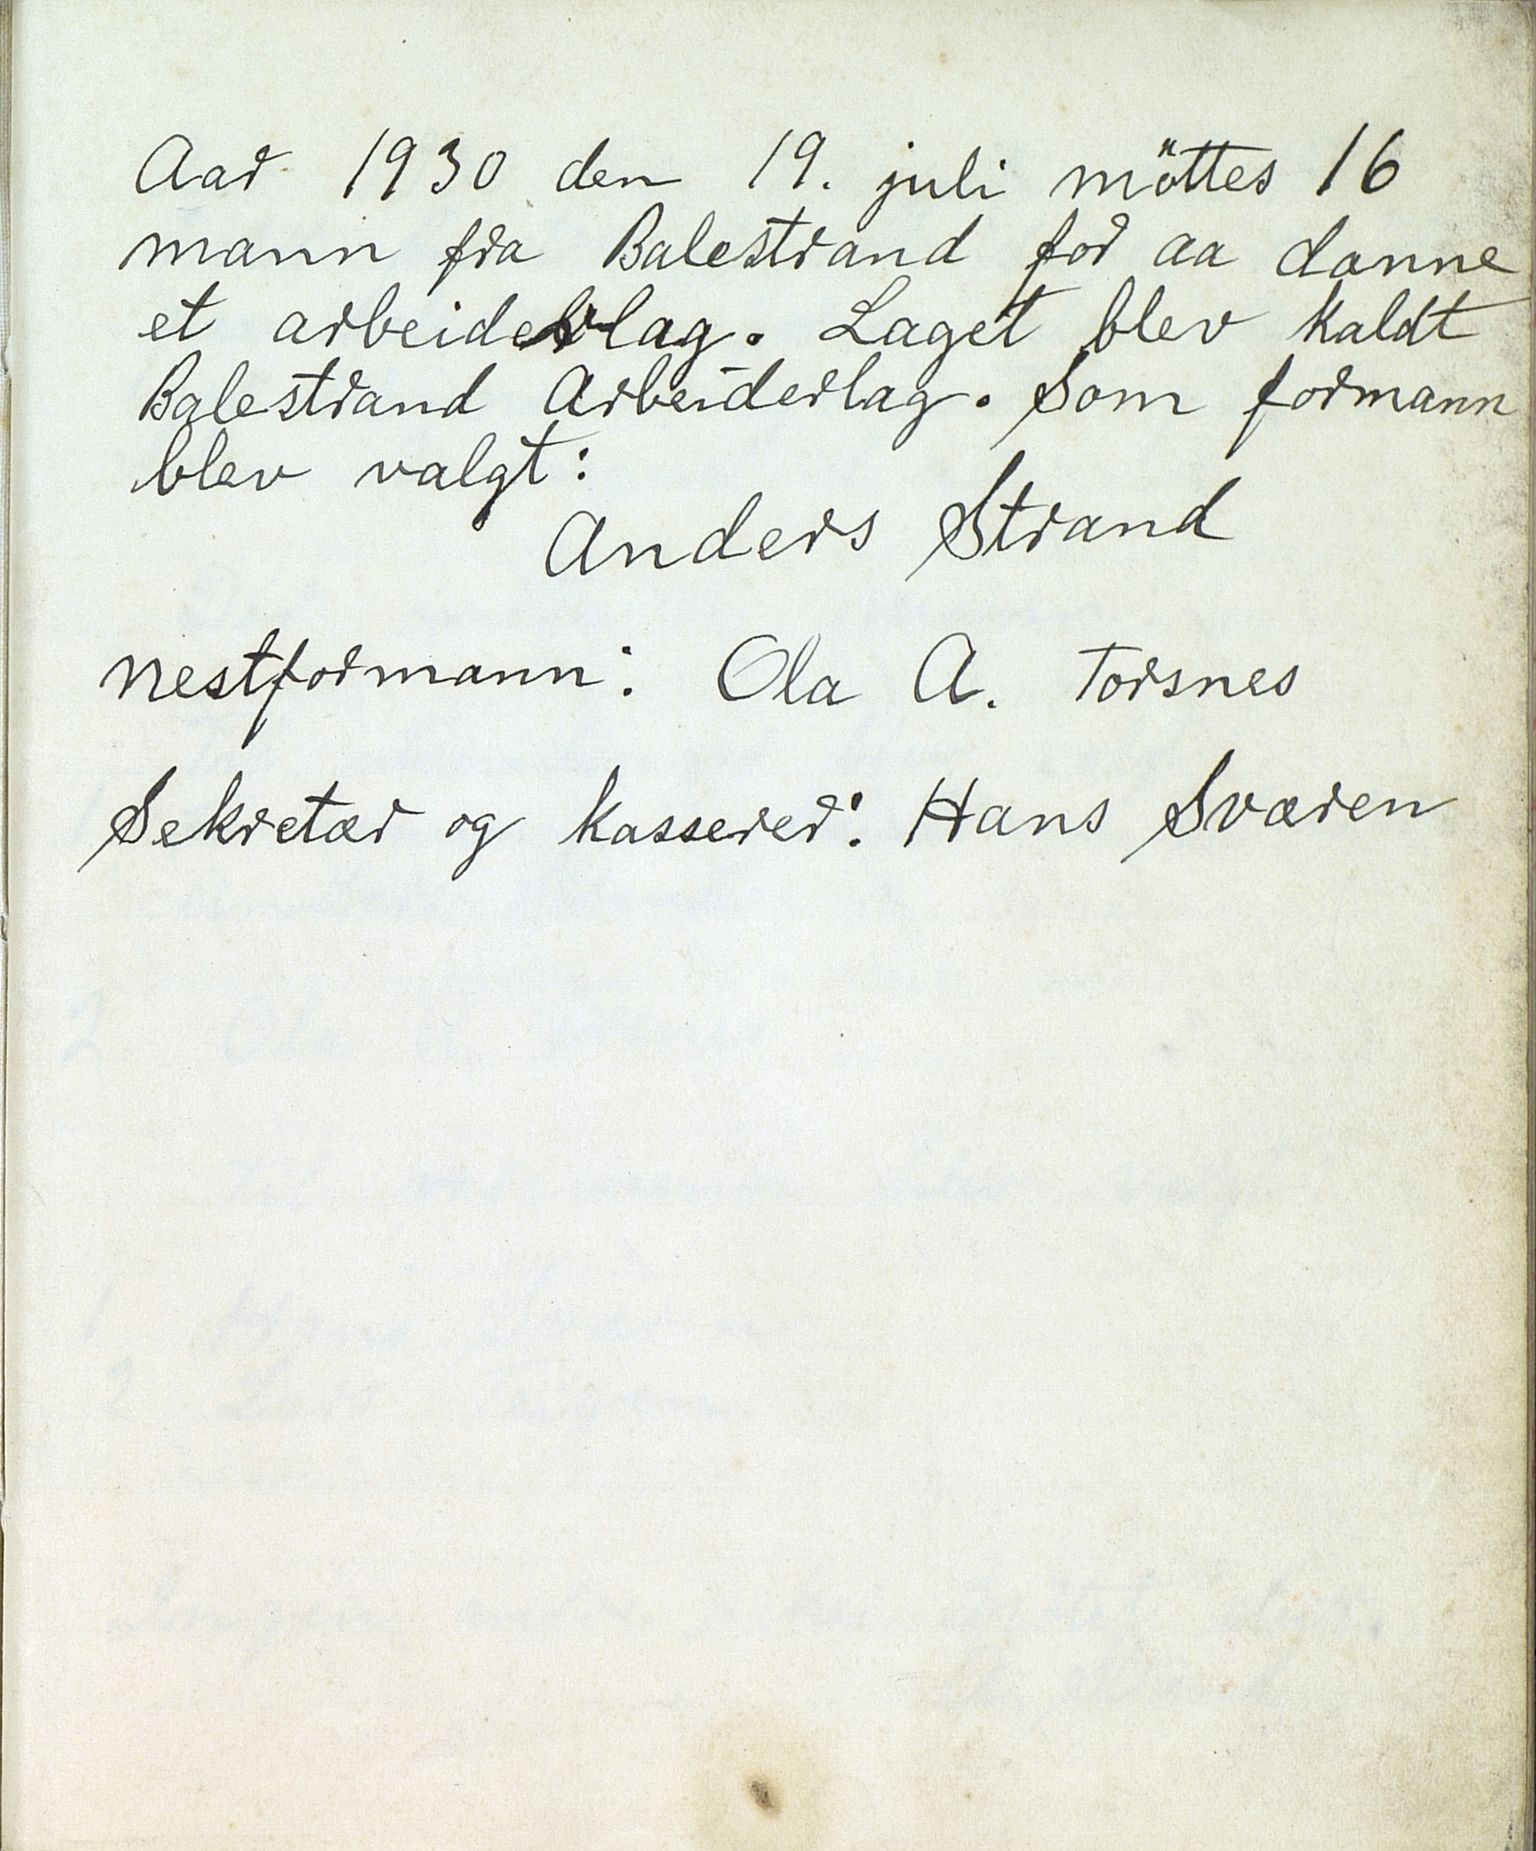 Aar 1930 den 19. juli möttes 16
mann fra Balestrand for aa danne
et arbeiderlag. Laget blev kaldt
Balestrand Arbeiderlag. Som formann
blev valgt:
Anders Strand
nestformann: Ola A. Torsnes
Sekretær og kasserer: Hans Sværen